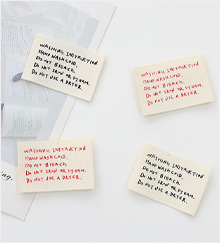 WASHING INSTRUCTION
HAND WASH COLD.
DO NOT BLEACH.
DO NOT IRON OR STEAM.
DO NOT USE A DRYER.
WASHING INSTRUCTION
HAND WASH COLD.
DO NOT BLEACH.
DO NOT IRON OR STEAM.
DO NOT USE A DRYER.
WASHING INSTRUCTION
HAND WASH COLD.
DO NOT BLEACH.
DO NOT IRON OR STEAM.
DO NOT USE A DRYER.
WASHING INSTRUCTION
HAND WASH COLD.
DO NOT BLEACH.
DO NOT IRON OR STEAM.
DO NOT USE A DRYER.